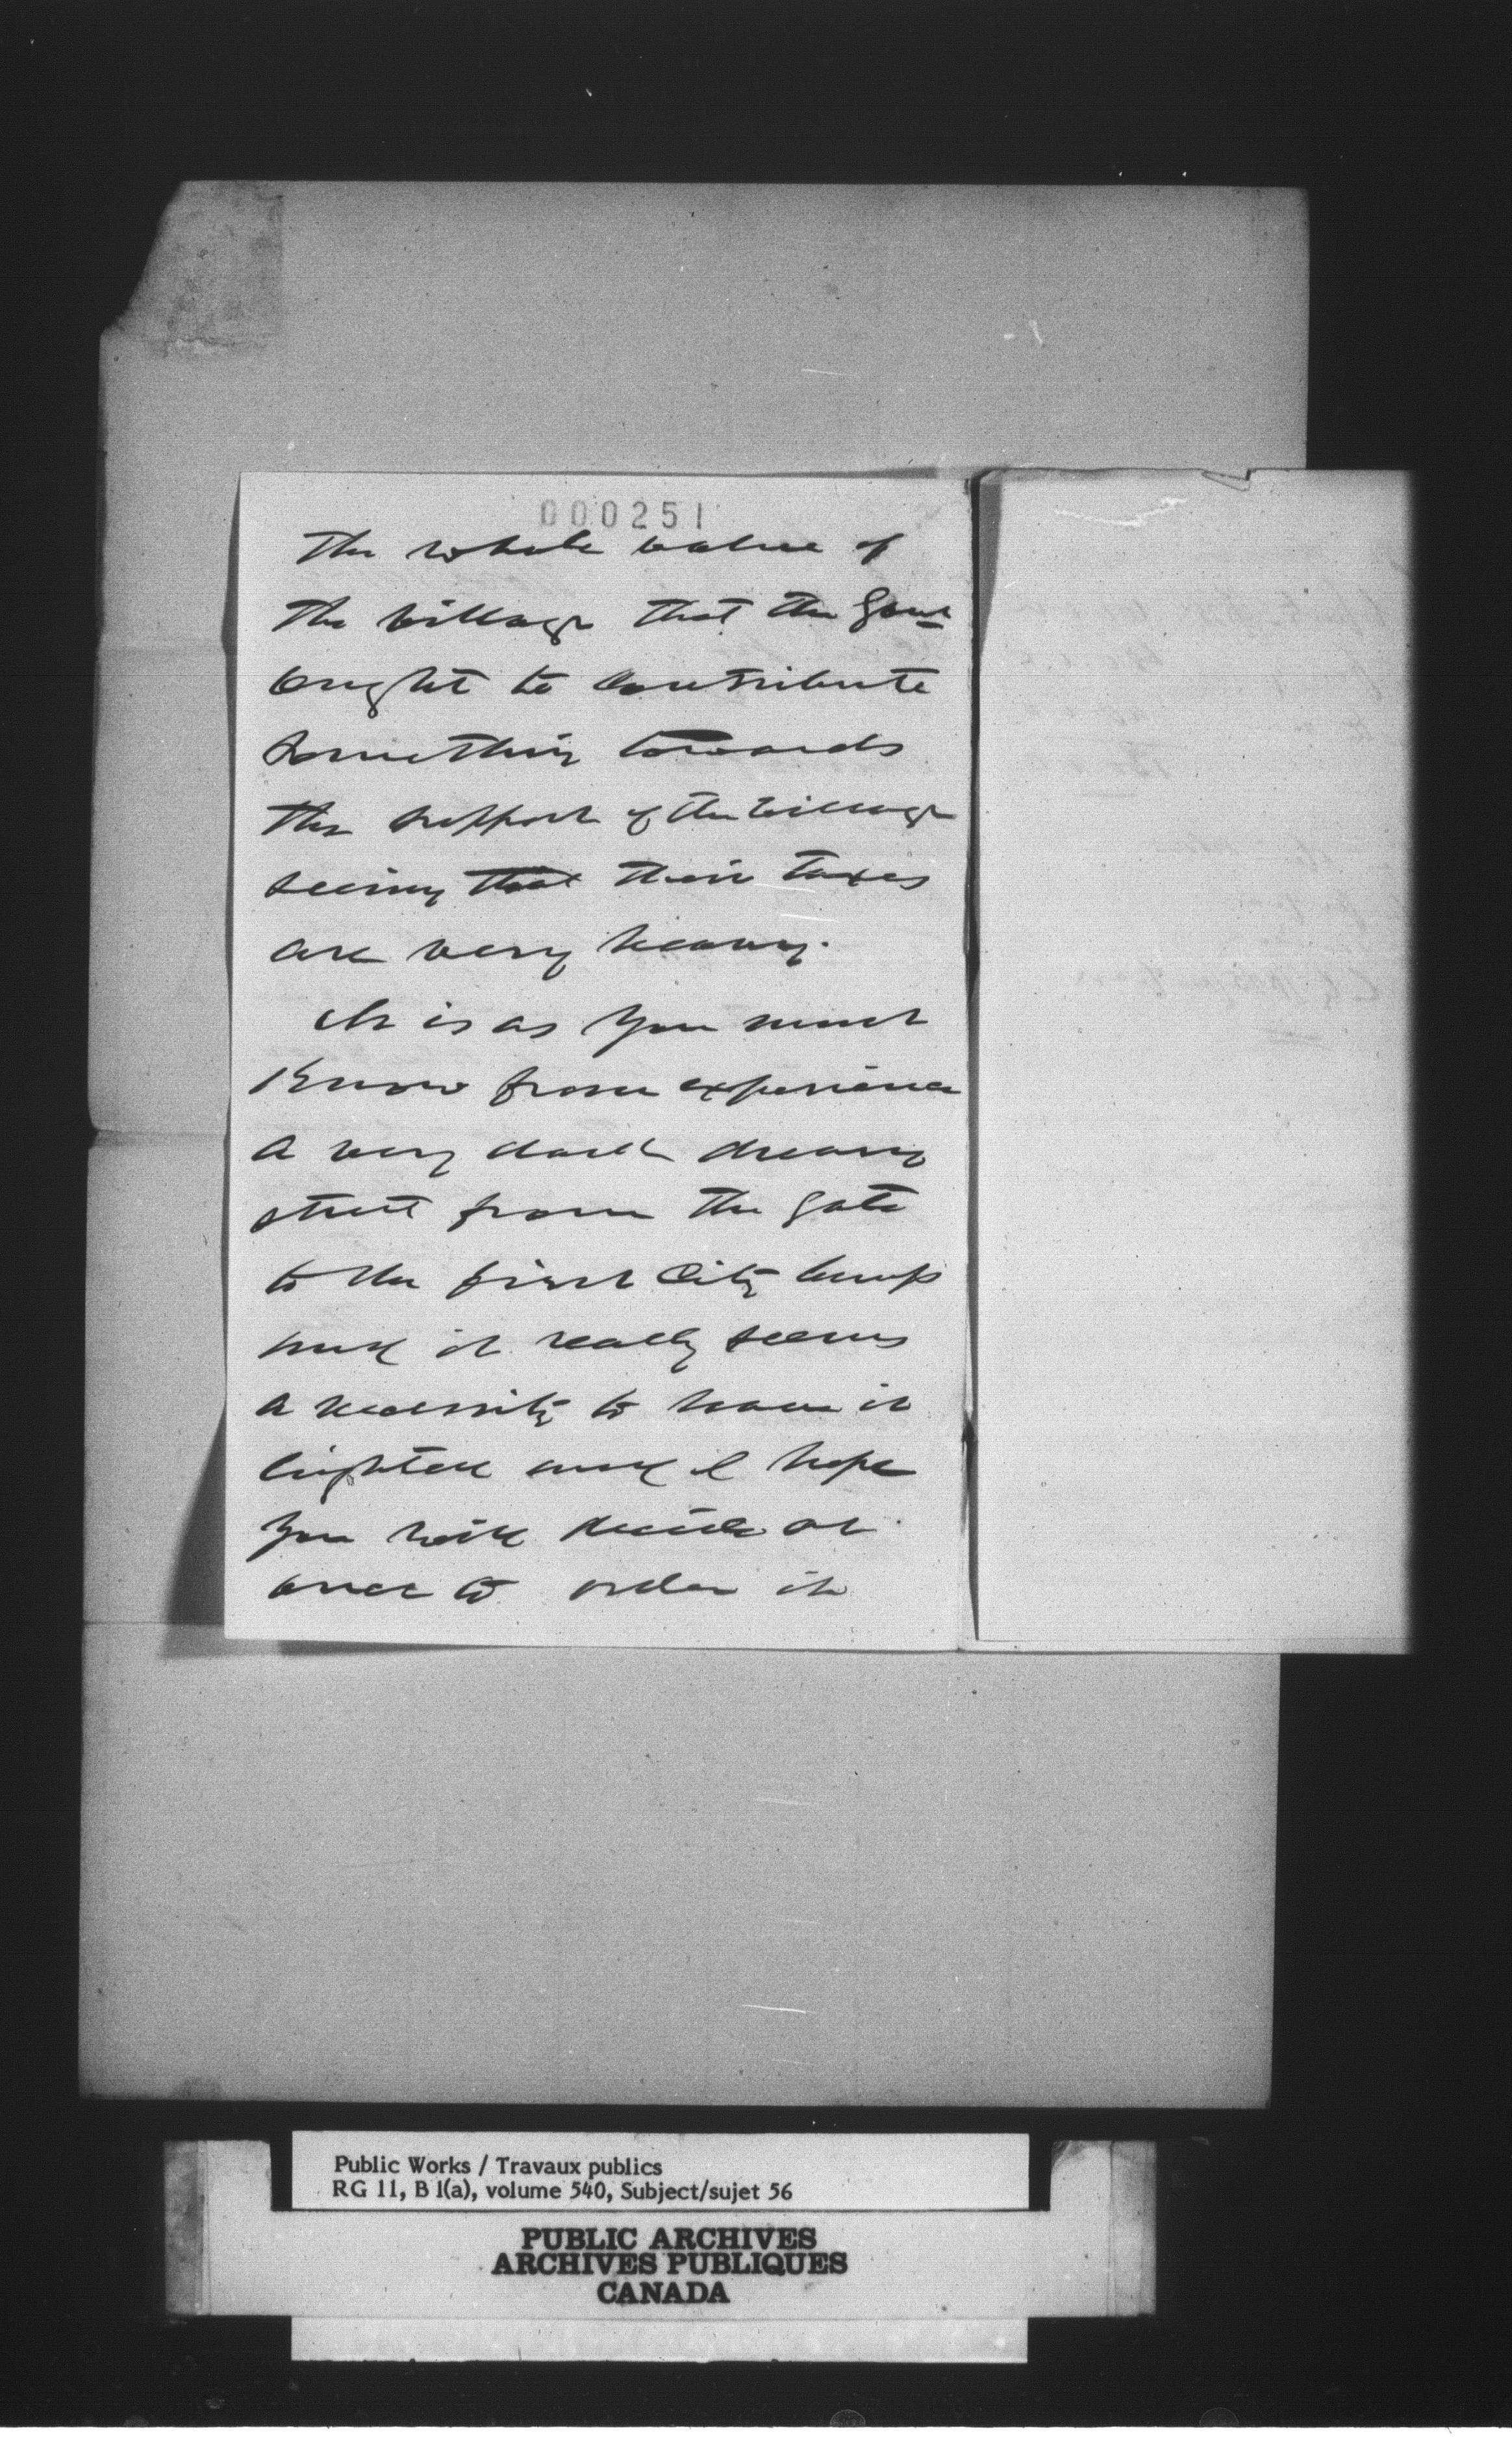 000251
The whole value of
the village that the Govt
ought to contribute
something towards
the support of the village
seeing that their taxes
are very heavy.
It is as you must
know from experience
a very dark dreary
street from the gate
to the first City lamp
and it really seems
a necessity to have it
lighted and I hope
you will decide at
once to order it
Public Works / Travaux publics
RG 11, B 1(a), volume 540, Subject/sujet 56
PUBLIC ARCHIVES
ARCHIVES PUBLIQUES
CANADA